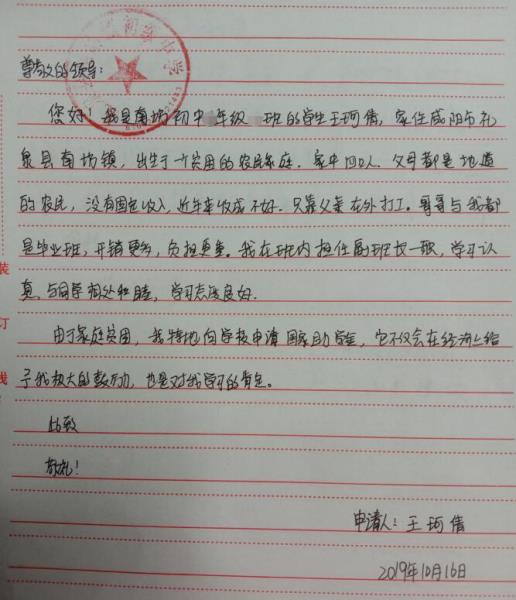 尊敬的领导:
您好,我是南坊初中 年级 班的学生王珂倩,家住咸阳市礼
泉县南坊镇,出生于一个贫困的农民家庭.家中四口人,父母都是地道
的农民,没有固定收入,近年来收成不好.只靠父亲在外打工。哥哥与我都
是毕业班,开销更多,负担更重。我在班内担任副班长一职,学习认
真,与同学相处和睦,学习态度良好.
由于家庭贫困,我特地向学校申请国家助学金,它不仅会在经济上给
予我极大的鼓励,也是对我学习的肯定。
此致
敬礼!
申请人:王珂倩
2019年10月16日
装
订
线